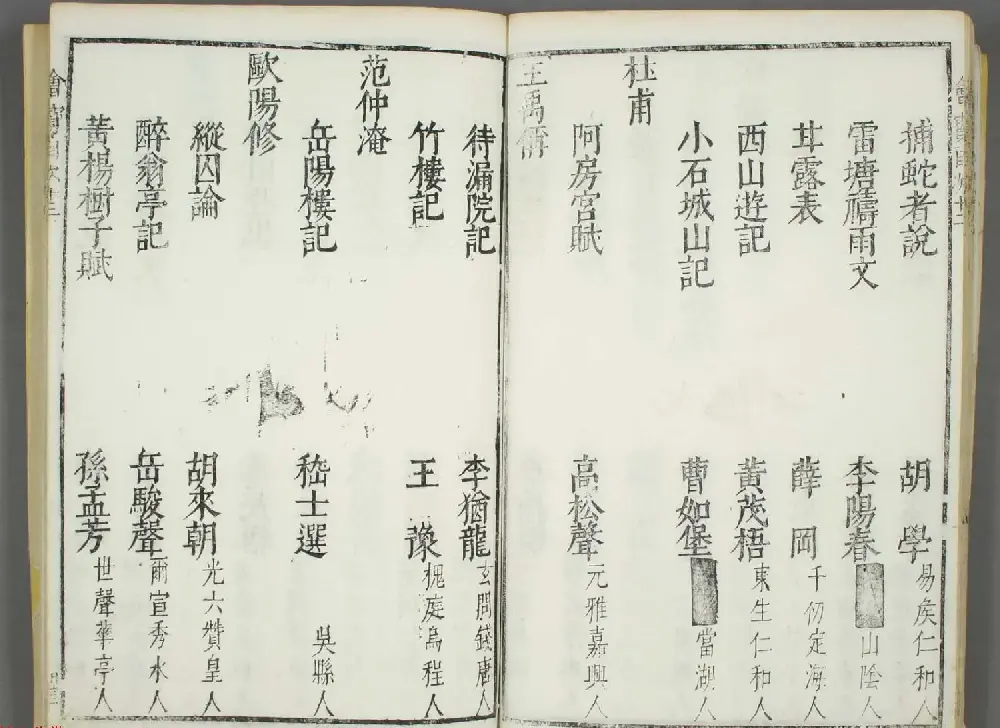 捕蛇者說 胡學 易矦仁和人
雷塘禱雨文 李陽春 山陰人
甘露表 薛岡 千仞定海人
西山遊記 黃茂梧 東生仁和人
小石城山記 曹如堡 當湖人
杜甫
阿房宮賦 高松聲 元雅嘉興人
王禹偁
待漏院記 李猶龍 玄間錢唐人
竹樓記 王㺞 槐庭烏程人
范仲淹
岳陽樓記 嵇士選 吳縣人
歐陽修
縱囚論 胡來朝 光六贊皇人
醉翁亭記 岳駿聲 爾宣秀水人
黃楊樹子賦 孫孟芳 世聲華亭人